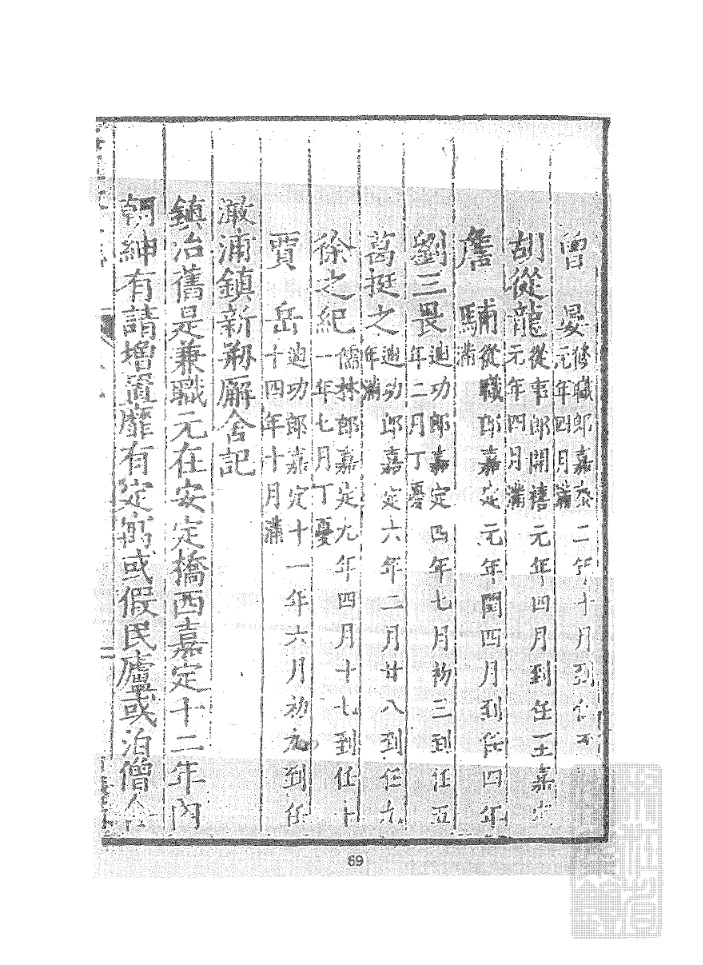 曾 晏 修職郎嘉泰二年十月到任
元年四月滿
胡從龍 從事郎開禧元年四月到任至嘉定
元年四月滿
詹 騑 從職郎嘉定元年閏四月到任四年
滿
劉三畏 迪功郎嘉定四年七月初三到任五
年二月丁憂
葛挺之 迪功郎嘉定六年二月廿八到任九
年滿
徐之紀 儒林郎嘉定九年四月十七到任十
一年七月丁憂
賈 岳 迪功郎嘉定十一年六月初九到任
十四年十月滿
澉浦鎮新剏廨舍記
鎮治舊是兼職元在安定橋西嘉定十二年內
朝紳有請增置靡有定寓或假民廬或泊僧舍
69